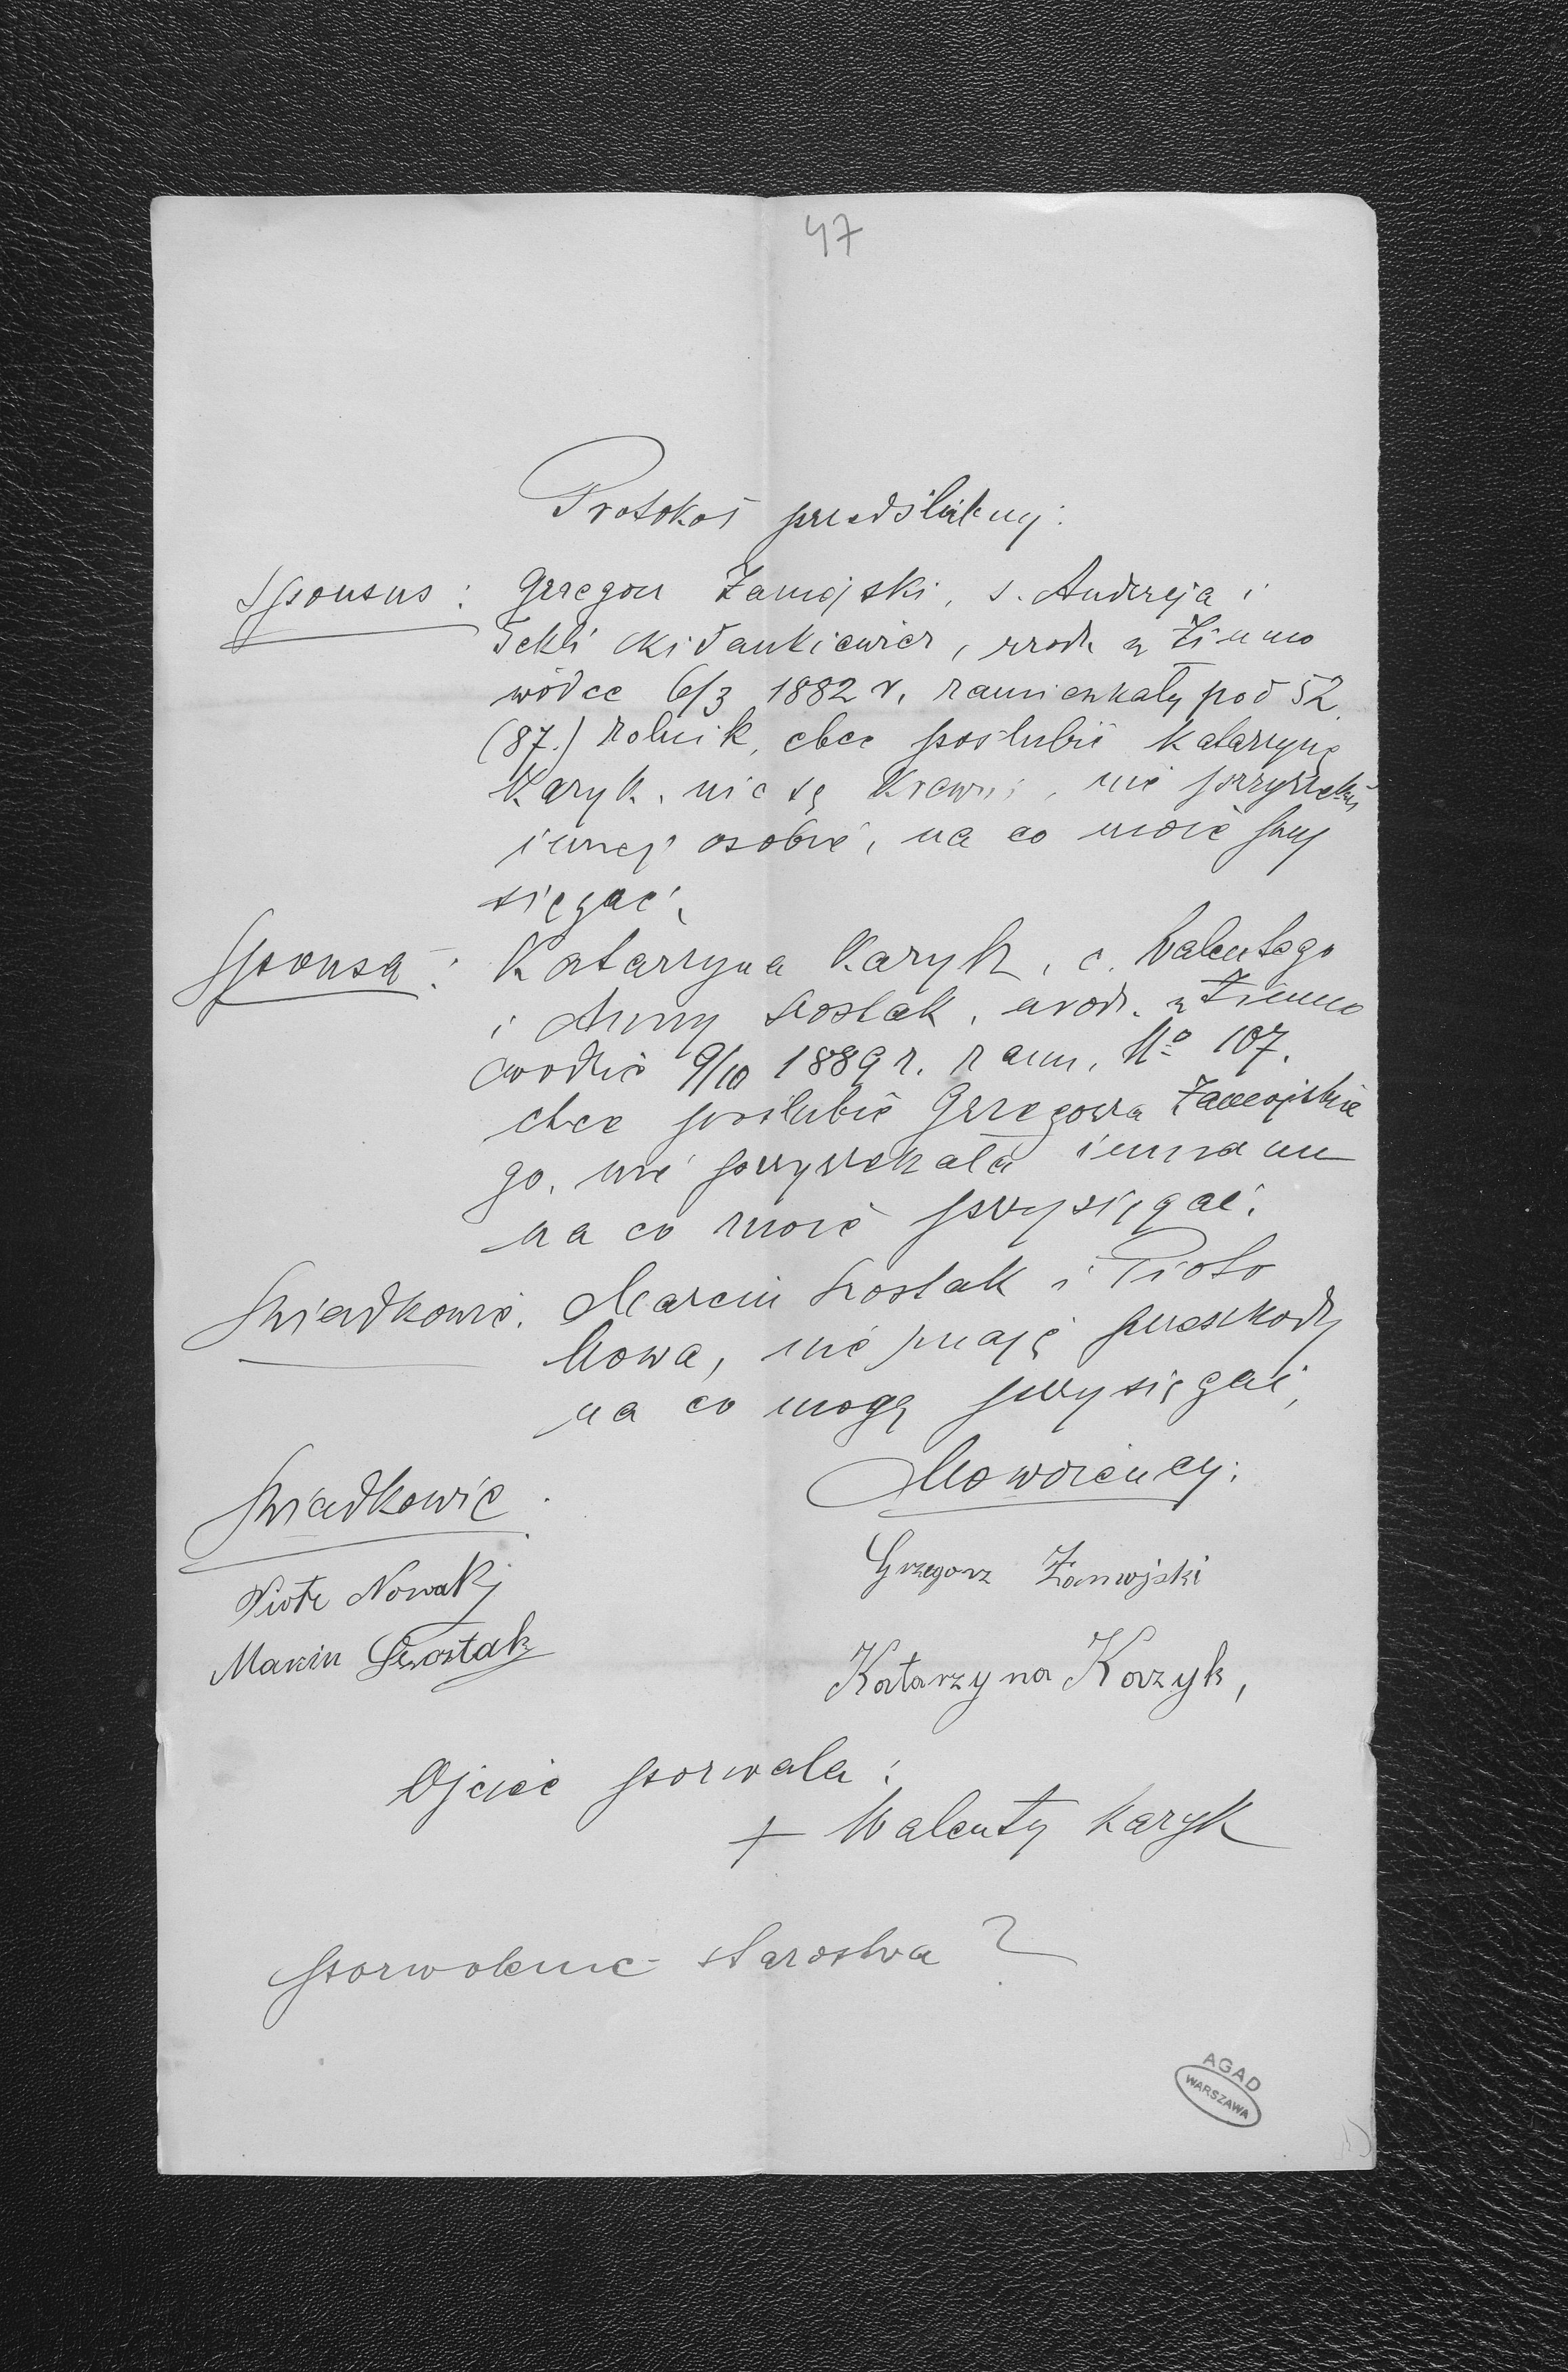 47
Protokół przedślubny:
Sponsus: Grzegorz Zamojski, s. Andrzeja i
Tekli urodz. w Zimno
wódce 6/3 1882 r. zamieszkały pod 52
(87.) rolnik, chce poślubić Katarzynę
Kazyk, nie są krewni, nie przyrzekł
innej osobie, na co może przy
sięgać.
Sponsa: Katarzyna Kazyk, c. Walentego
i Anny Szostak, urodz. w Zimno
wodzie 9/10 1889 r. zam. No 107.
chce poślubić Grzegorza Zamojskie
go, nie przyrzekała innemu
na co może przysięgać.
Świadkowie. Marcin Szostak i Piotr
Nowa, nie znają przeszkody
na co mogą przysięgać,
Świadkowie.
Nowożeńcy:
Piotr Nowakj
Grzegorz Zamojski
Marcin Szostak
Katarzyna Kazyk,
Ojciec pozwala:
+ Walenty Kazyk
pozwolenie starostwa?
AGAD
WARSZAWA